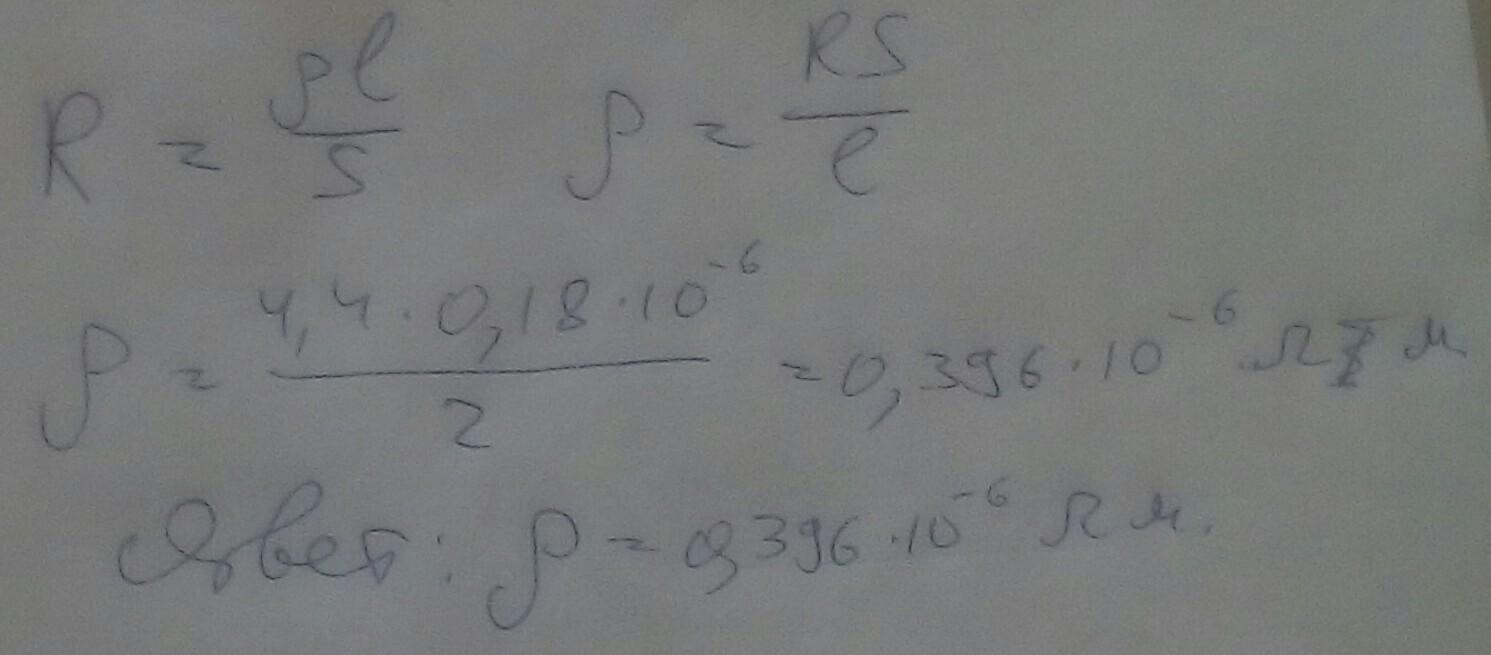 R = ρl/S ρ = RS/l
ρ = 4,4 · 0,18 · 10⁻⁶ / 2 = 0,396 · 10⁻⁶ Ω м
Ответ: ρ = 0,396 · 10⁻⁶ Ω м.